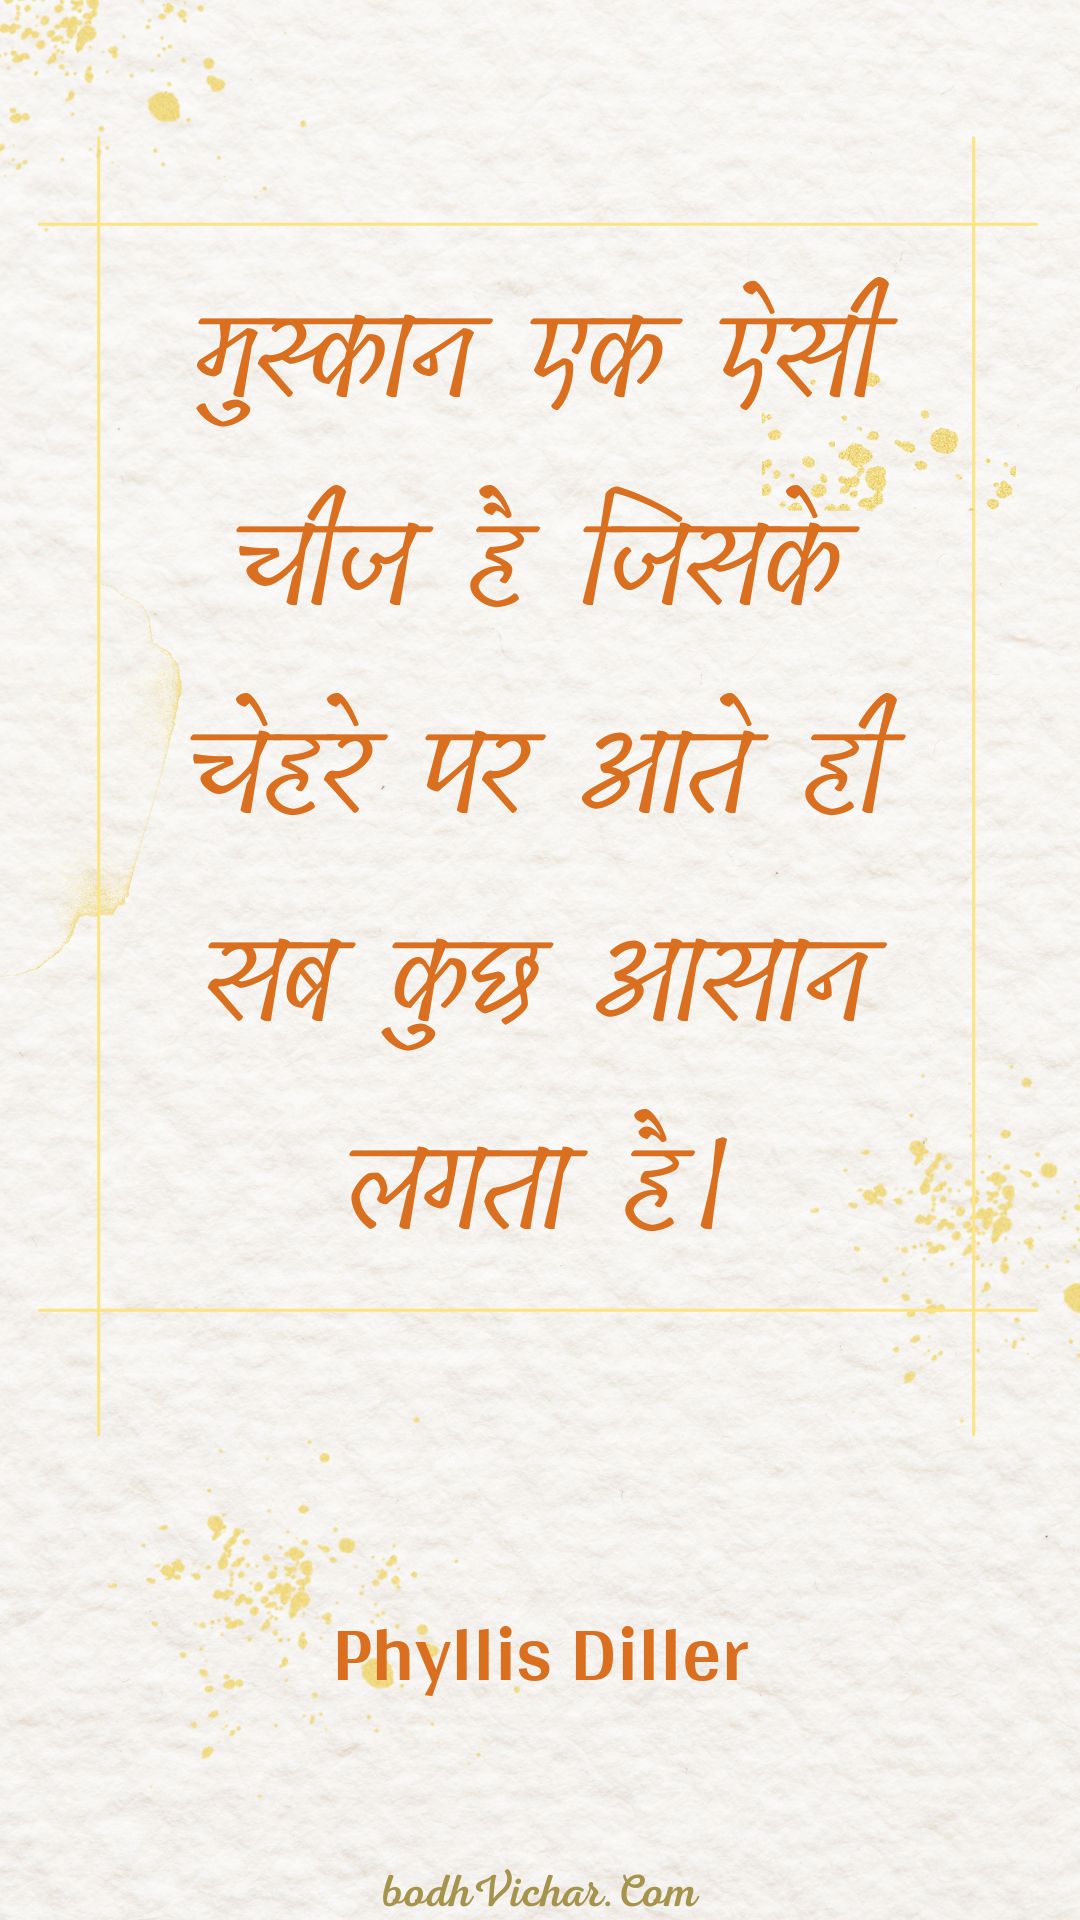 मुस्कान एक ऐसी
चीज है जिसके
चेहरे पर आते ही
सब कुछ आसान
लगता है।
Phyllis Diller
bodhVichar.Com